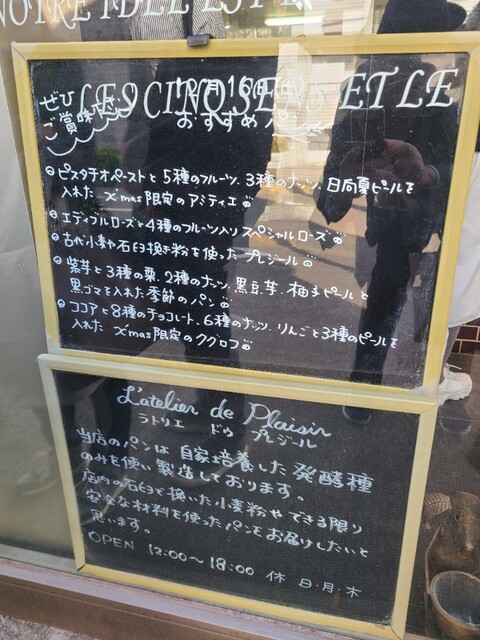 NOTRE IDÉE EST
LES CINQ SENS ET LE
ぜひ
ご賞味下さい
12月16日(土)
おすすめパン
ピスタチオペーストと5種のフルーツ、3種のナッツ、日向夏ピールを
入れた X'mas限定のアミティエ
エディブルローズと4種のフルーツ入りスペシャルローズ
古代小麦や石臼挽き粉を使ったプレジール
紫芋と3種の栗、2種のナッツ、黒豆、芋、柚子ピールと
黒ゴマを入れた季節のパン
ココアと8種のチョコレート、6種のナッツ、りんごと3種のピールを
入れた X'mas限定のクグロフ
L'atelier de Plaisir
ラトリエ ドゥ プレジール
当店のパンは自家培養した発酵種
のみを使い製造しております。
店内の石臼で挽いた小麦粉やできる限り
安全な材料を使ったパンをお届けしたいと
思います。
OPEN 12:00〜18:00 休 日・月・木